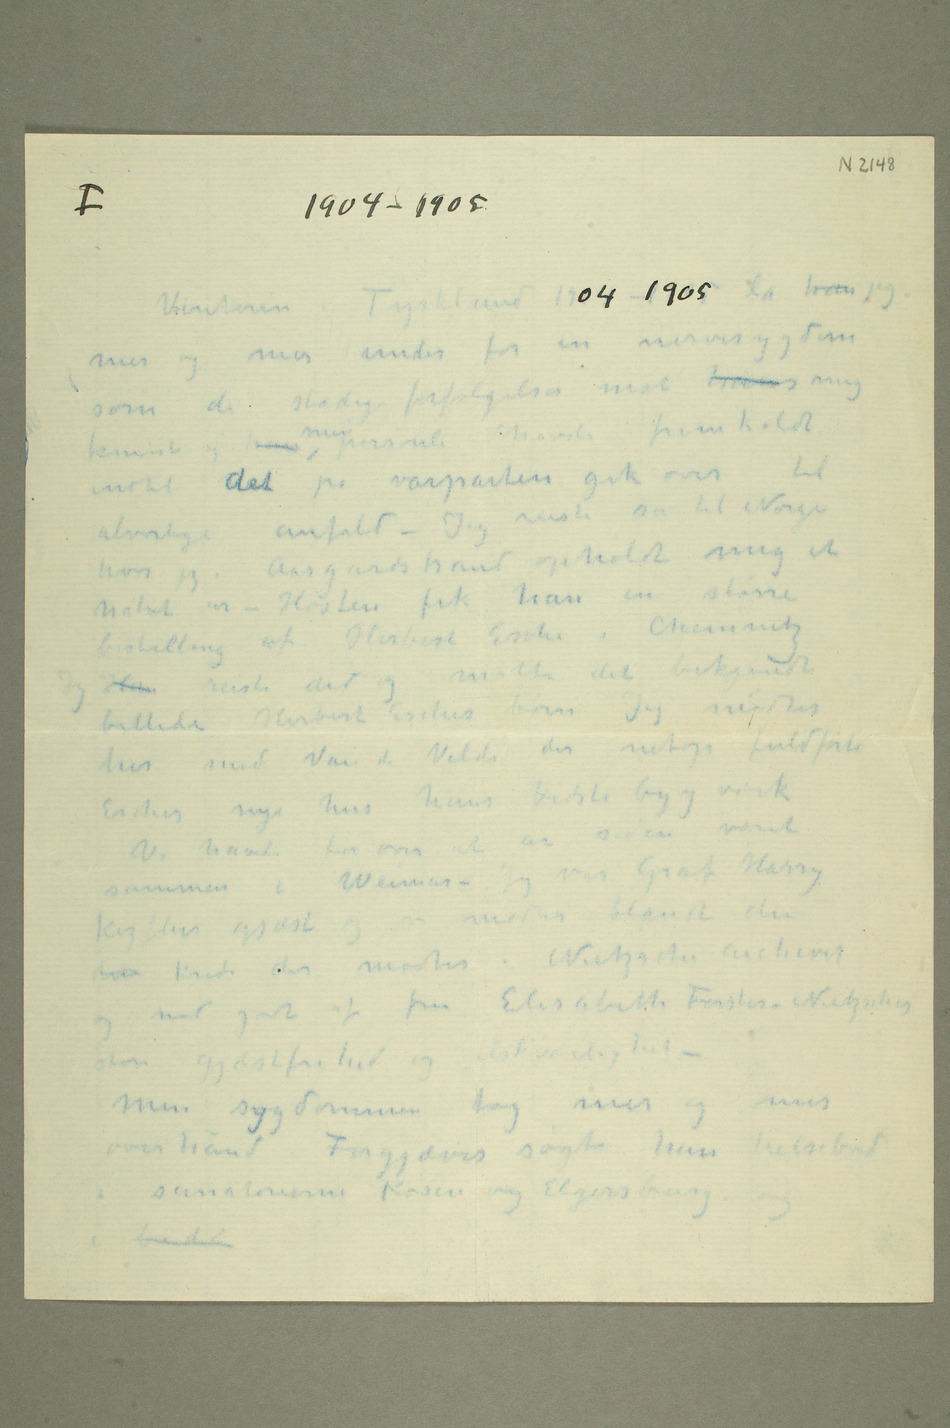 N 2148
I 1904-1905
Vinteren Tyskland 1904 - 1905 la han jeg
mer og mer under for en nervesygdom
som de stadige forfølgelser mod hans mig
kunst og hans min person havde fremholdt
indtil det på vårparten gik over til
alvorlige anfald – Jeg reiste så til Norge
hvor jeg i Aasgaardstrand opholdt mig et
halvt år – Høsten fik han en større
bestilling af Herbert Esche i Chemnitz
Jeg Han reiste did og malte det bekjendte
billede Herbert Esches børn Jeg mødtes
her med Van de Velde der netop fuldførte
Esches nye hus hans bedste bygværk
Vi havde for over et år siden været
sammen i Weimar – Jeg var Graf Harry
Kesslers gjæst og vi mødtes blandt den
kreds der mødtes i Nietzsche archivet
og nød godt af fru Elisabeth Førster-Nietzsches
store gjæstfrihed og elskværdighet –
Men sygdommen tog mer og mer
overhånd Forgjæves søgte han helsebod
i sanatorierne Køsen og Elgersburg og
i